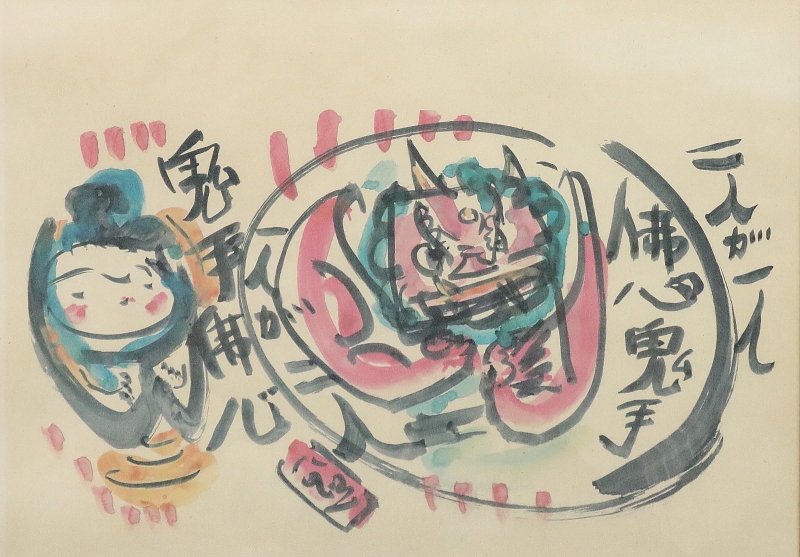 二人が一人
佛心鬼手
一人が
二人
鬼手佛心